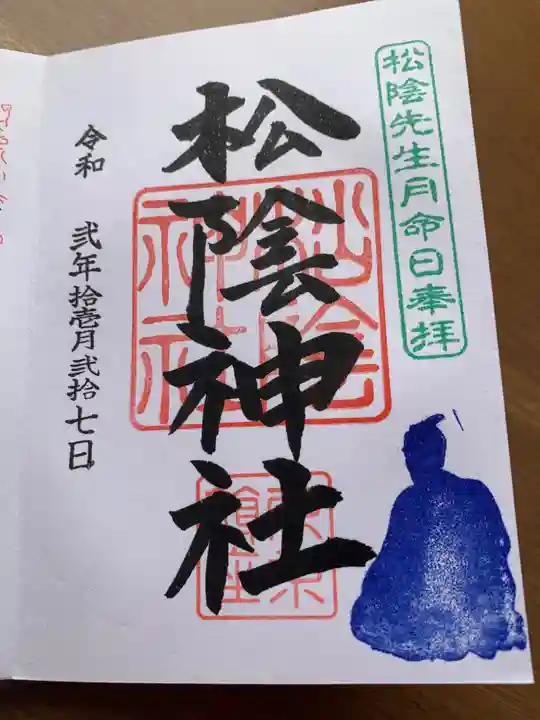 松陰先生月命日奉拝
松陰神社
松陰神社
東京鎮座
令和
弐年拾壱月弐拾七日